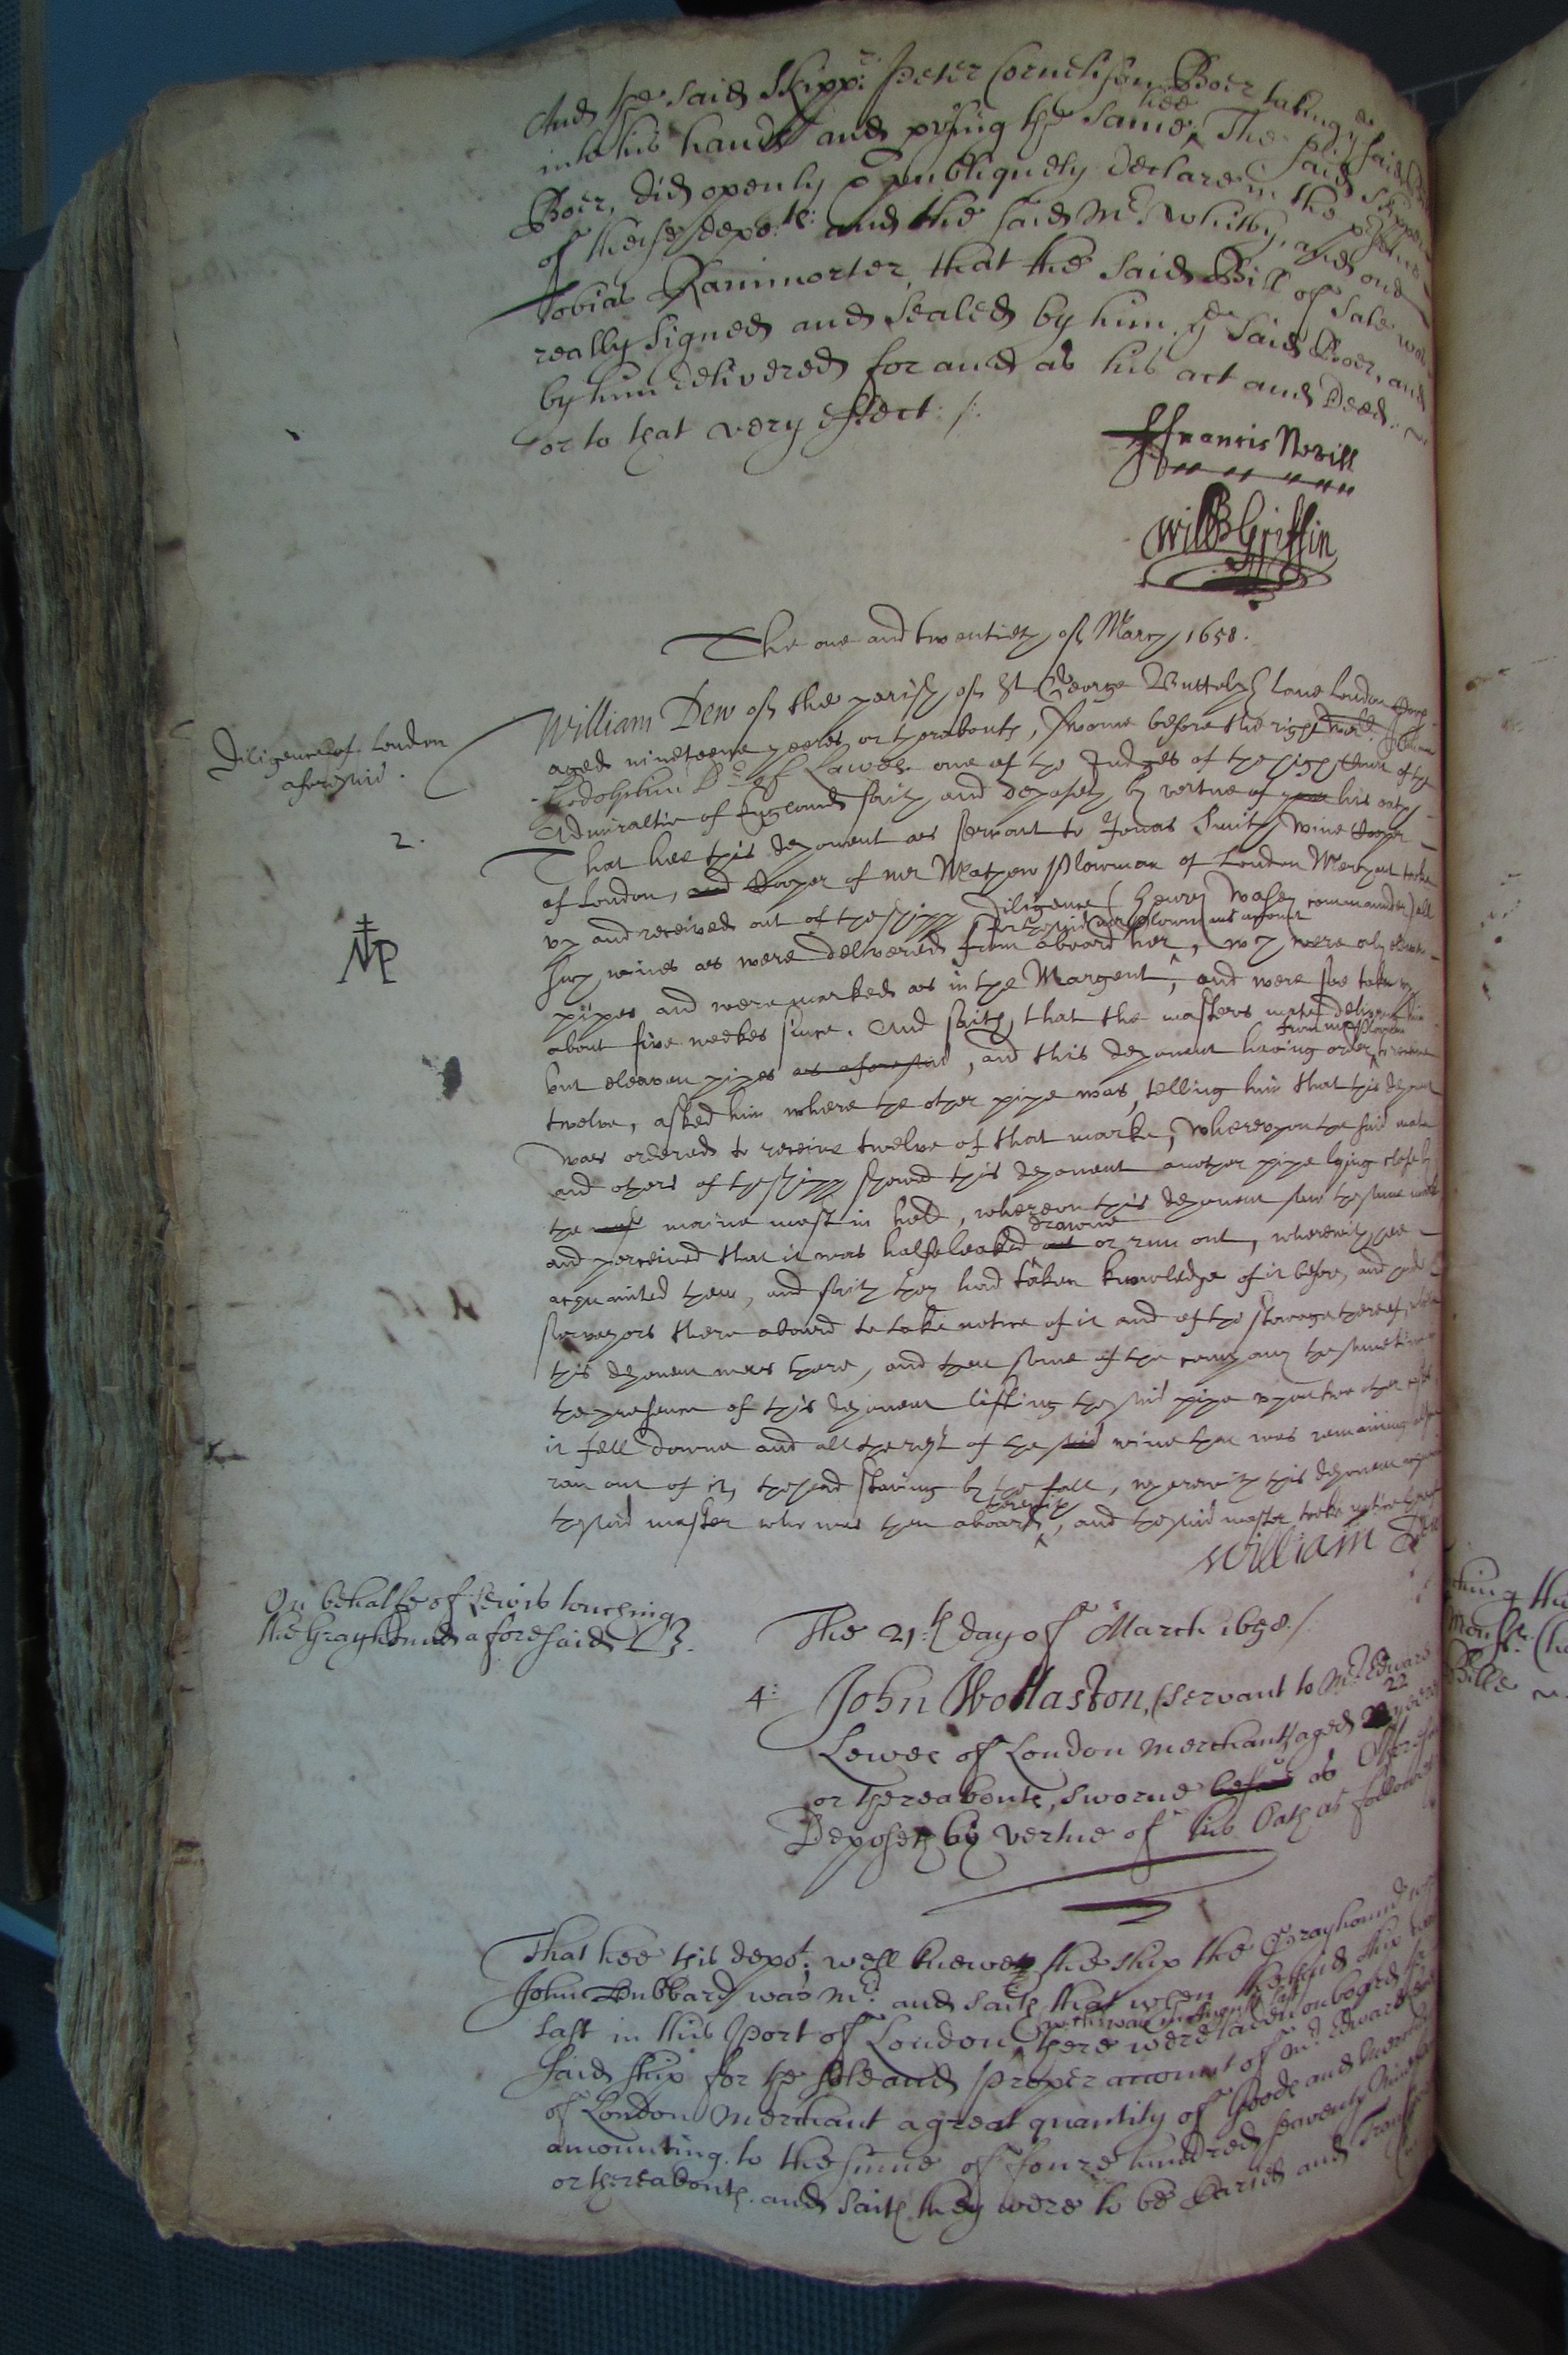 And the said Skipp:r Peter Cornelison Boer taking ye said
into his hands and p'using the same, hee The said Skipper
Boer, did openly & publiquely declare in the p'sence
of these depo:ts: and the said Mr. Whitby, and one
Tobias Rammorter, that the said Bill of Sale was
really signed and sealed by him ye said Boer, and
by him delivered for and as his act and Deed.
or to that very effect: /:
ffrancis Nevill
Will Griffin
The one and twentieth of March 1658.
Diligence of London
aforesaid.
2.
William Dew of the parish of St George Buttolph lane London
aged nineteene yeeres or thereabouts, sworne before the right
Godolphin Dr of Lawes one of the Judges of the high Court of the
Admiraltie of England saith and deposeth by vertue of his oath
That hee this deponent as servant to Jonas Smith wine Cooper
of London, and Cooper of mr Mathew Plowman of London Merchant tooke
up and received out of the shipp Diligence (Henry commander) all
such wines as were delivered from aboard her, for the said mr Plowmans account wch were only eleaven
pipes and were marked as in the Margent, and were soe taken up
MP
about five weekes since. And saith that the masters mate delivered him
but eleaven pipes as aforesaid, and this deponent having order from mr Plowman to receive
twelve, asked him where the other pipe was, telling him that this deponent
was ordered to receive twelve of that marke, Whereupon the said mate
and others of the shipp shewed this deponent another pipe lying close by
the maine mast in hold, whereon this deponent saw the same marke
and perceived that it was halfe leaked out drawne or run out, wherewith hee
acquainted them, and saith they had taken knowledge of it before, and had
surveyors there aboard to take notice of it and of the stowage thereof, when
this deponent was there, and then some of the company the same time in
the presence of this deponent lifting the said pipe upon two other
it fell downe and all the rest of the said wine that was remaining
ran out of it, the head staving by the fall, wherewith this deponent
the said master who was then aboard, therewith and the said master tooke notice thereof
William Dew
On behalfe of Lewis touching
the Grayhound aforesaid
The 21:th day of March 1658./
4:
John Wollaston, servant to Mr. Edward
Lewes of London Merchant, aged 22 yeares
or thereabouts, sworne before as Aforesaid
Deposeth by vertue of his Oath as followeth
That hee this depo:t well knoweth the ship the Grayhound
John Hubbard was Mr. and saith that when the said ship was
last in this Port of London, (wch was in August last) there were laden onboard the
said ship for the sole and proper account of Mr Edward
of London Merchant a great quantity of Goods and
amounting to the summe of foure hundred seaventy nine
or thereabouts. and saith they were to be Caried and